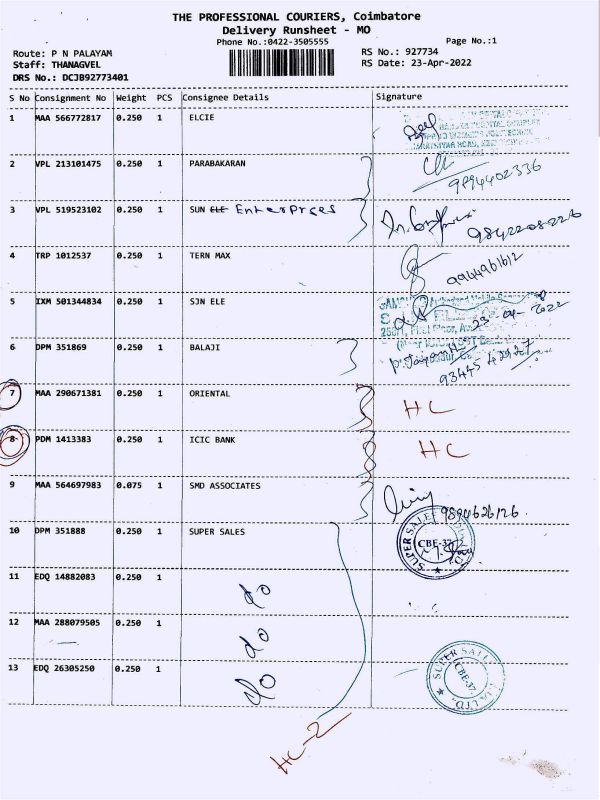 THE PROFESSIONAL COURIERS, Coimbatore
Delivery Runsheet - MO
Phone No.:0422-3505555
Page No.:1
Route: P N PALAYAM
RS No.: 927734
Staff: THANAGVEL
RS Date: 23-Apr-2022
DRS No.: DCJB92773401
S No Consignment No Weight PCS Consignee Details Signature
1 MAA 566772817 0.250 1 ELCIE
2 VPL 213101475 0.250 1 PARABAKARAN
9894402336
3 VPL 519523102 0.250 1 SUN ELE Enterprses
9842208226
4 TRP 1012537 0.250 1 TERN MAX
9944961612
5 IXM 501344834 0.250 1 SJN ELE
23-04-2022
6 DPM 351869 0.250 1 BALAJI
7 MAA 290671381 0.250 1 ORIENTAL HC
8 PDM 1413383 0.250 1 ICIC BANK HC
9 MAA 564697983 0.075 1 SMD ASSOCIATES
9894626126
10 DPM 351888 0.250 1 SUPER SALES
SUPER SALES
CBE-37
11 EDQ 14882083 0.250 1 do
12 MAA 288079505 0.250 1 do
13 EDQ 26305250 0.250 1 do
SUPER SALES
CBE-37
LTD.
HC-2